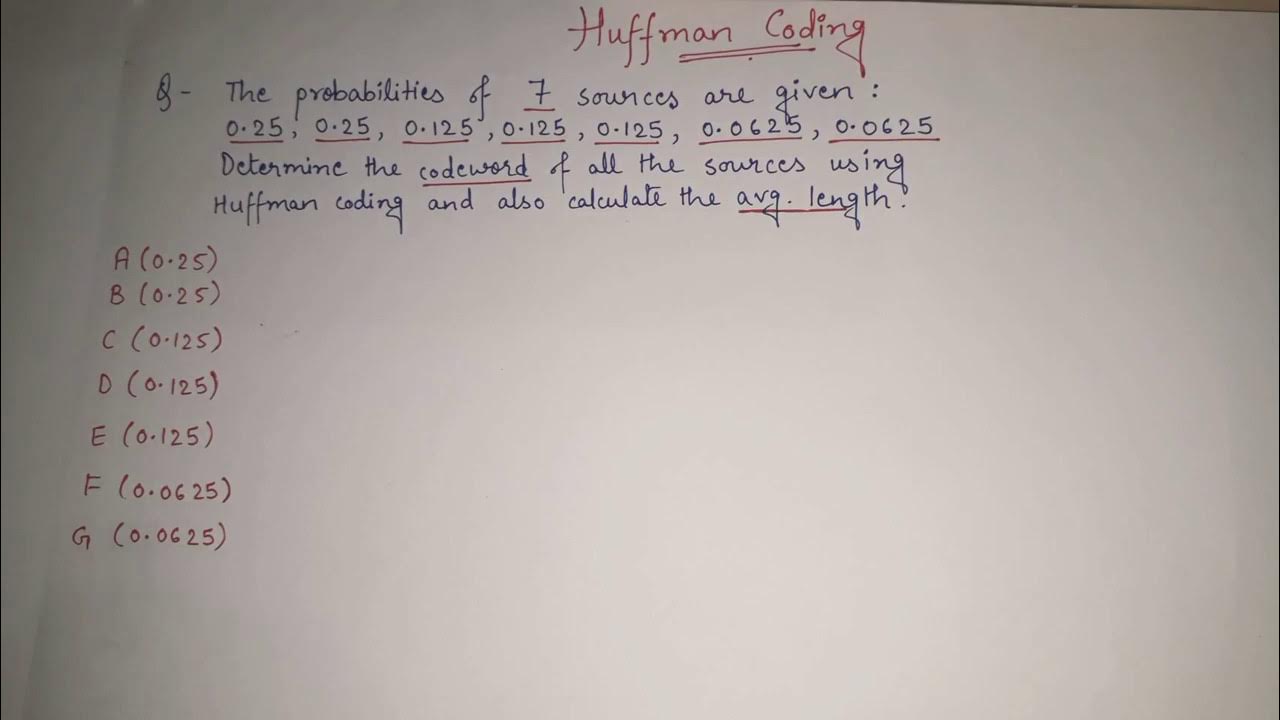 Huffman Coding
Q - The probabilities of 7 sources are given :
0.25, 0.25, 0.125, 0.125, 0.125, 0.0625, 0.0625
Determine the codeword of all the sources using
Huffman coding and also calculate the avg. length.
A (0.25)
B (0.25)
C (0.125)
D (0.125)
E (0.125)
F (0.0625)
G (0.0625)